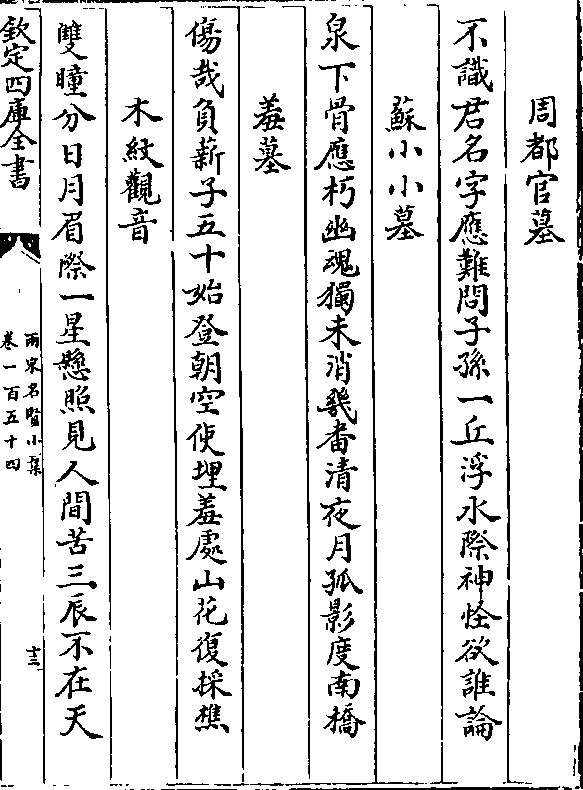 周都官墓
不識君名字應難問子孫一丘浮水際神怪欲誰論
蘇小小墓
泉下骨應朽幽魂獨未消幾畨清夜月孤影度南橋
羞墓
傷哉負薪子五十始登朝空使埋羞處山花復採樵
木紋觀音
雙瞳分日月眉際一星懸照見人間苦三辰不在天
欽定四庫全書
兩宋名賢小集
卷一百五十四
十三